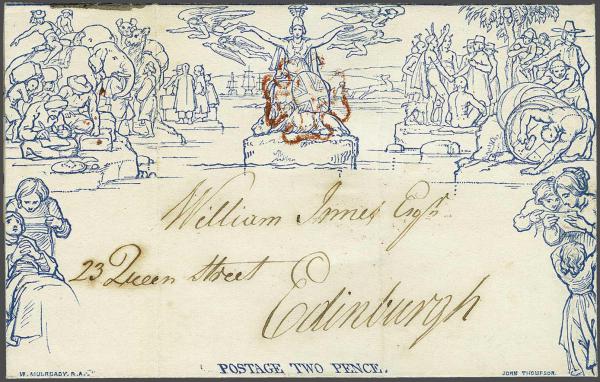 William Innes Esqr.
23 Queen Street
Edinburgh
POSTAGE TWO PENCE.
W. MULREADY. R.A.
JOHN THOMPSON.